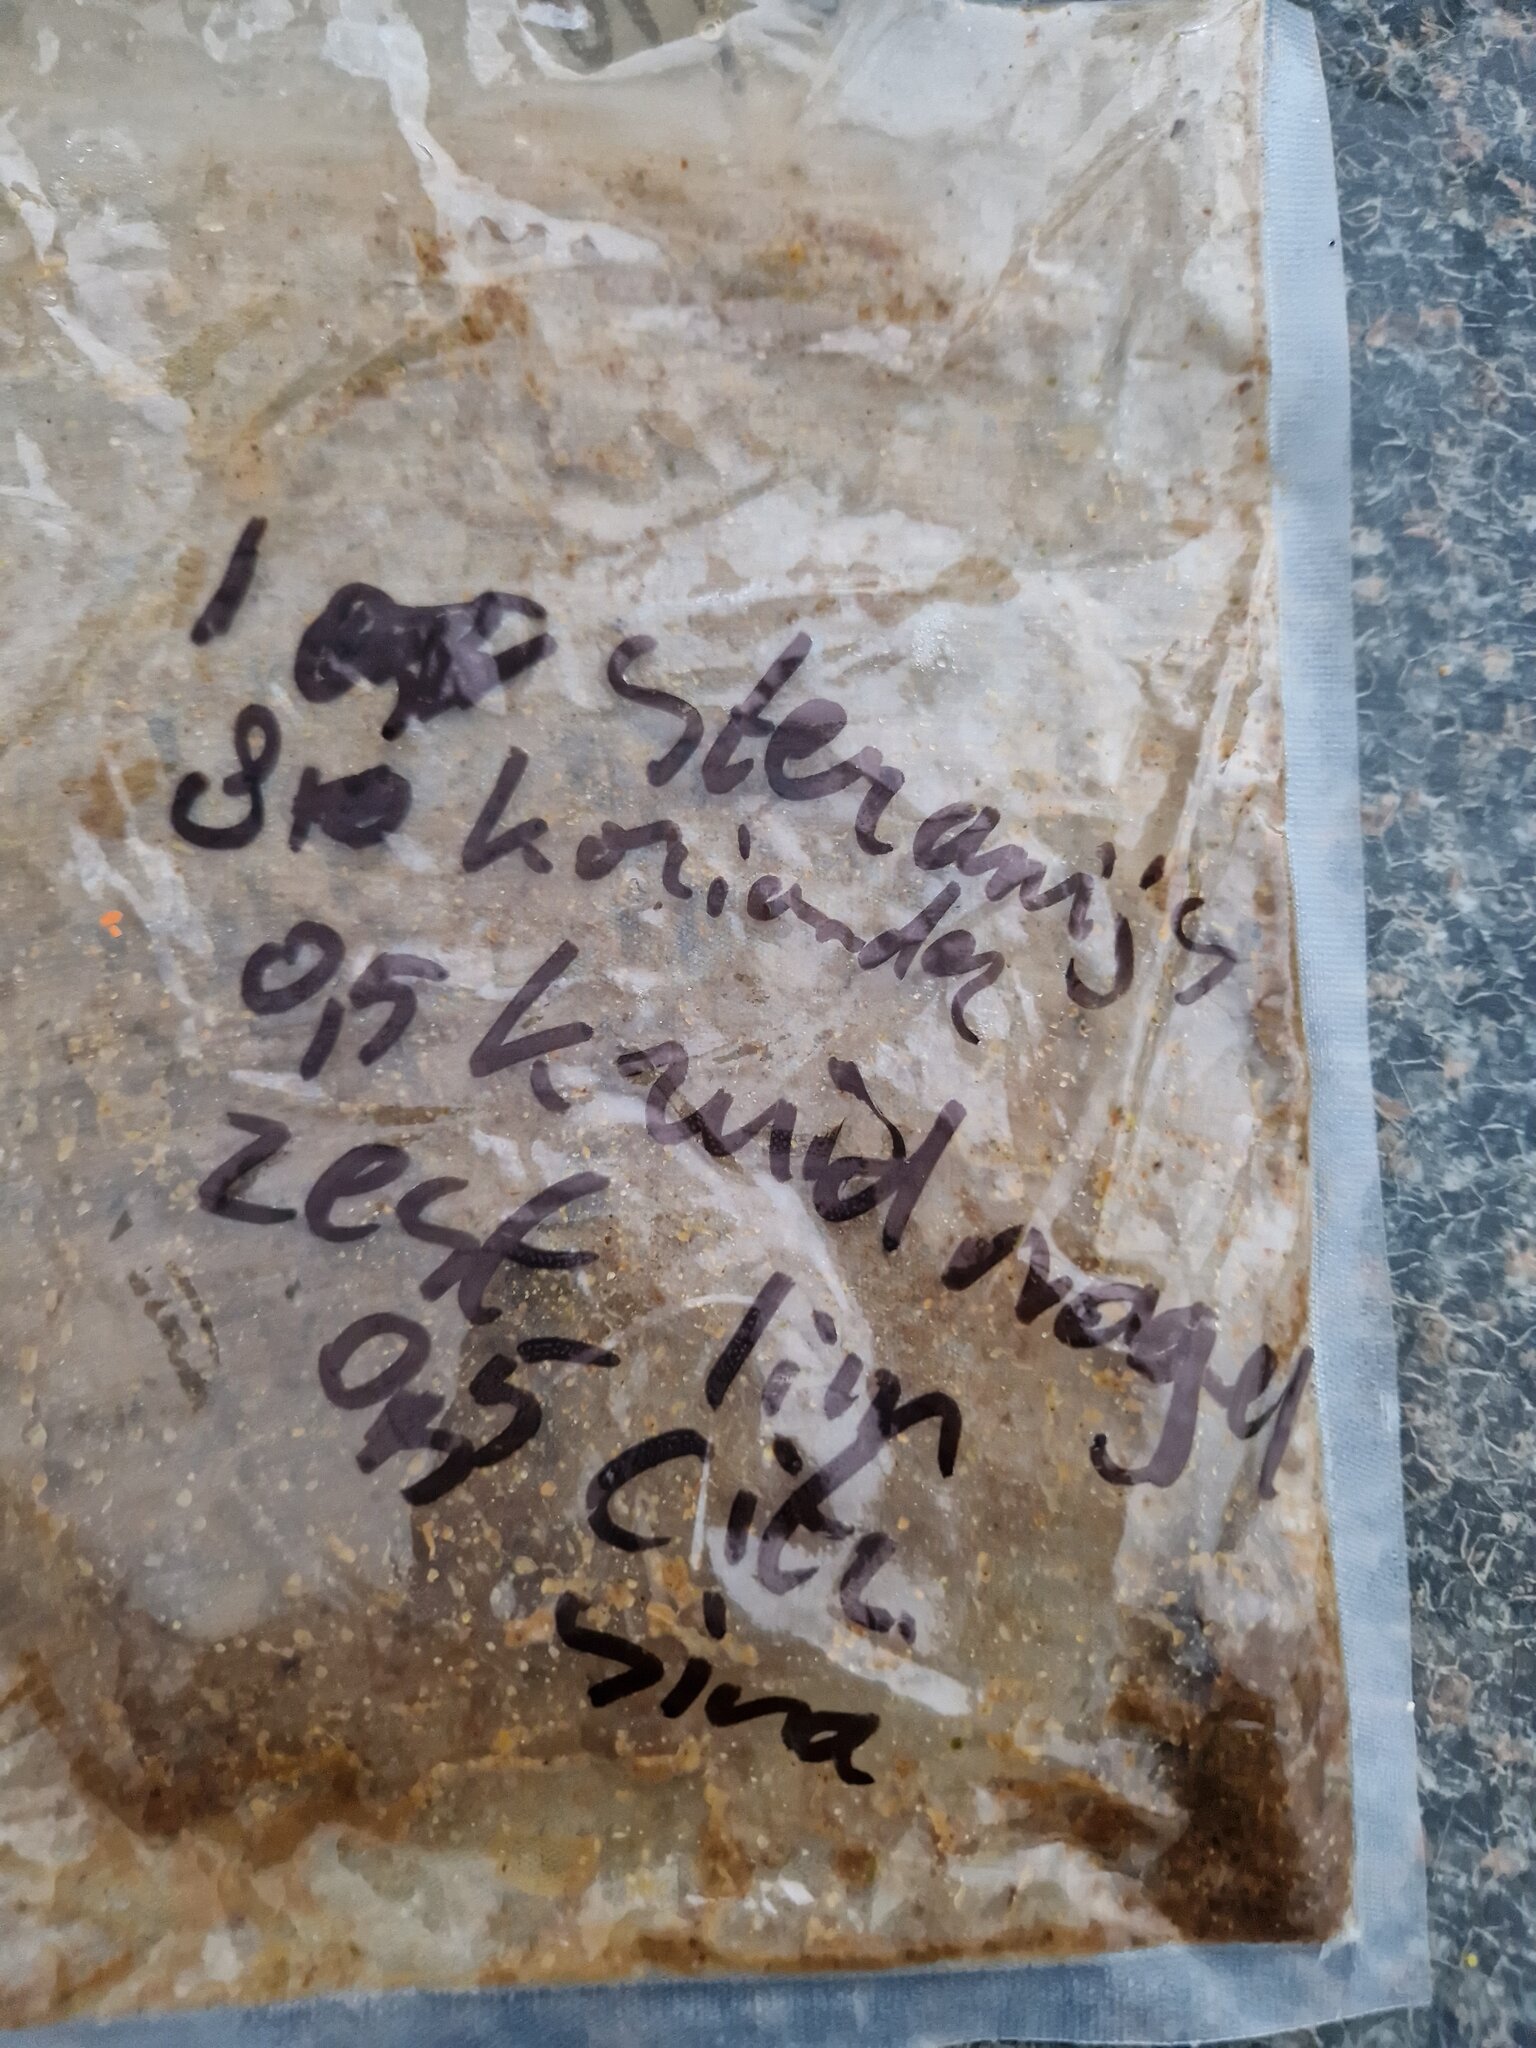 1 steranijs
8 koriander
0,5 kruidnagel
zest lim
0,5 Citr.
siva